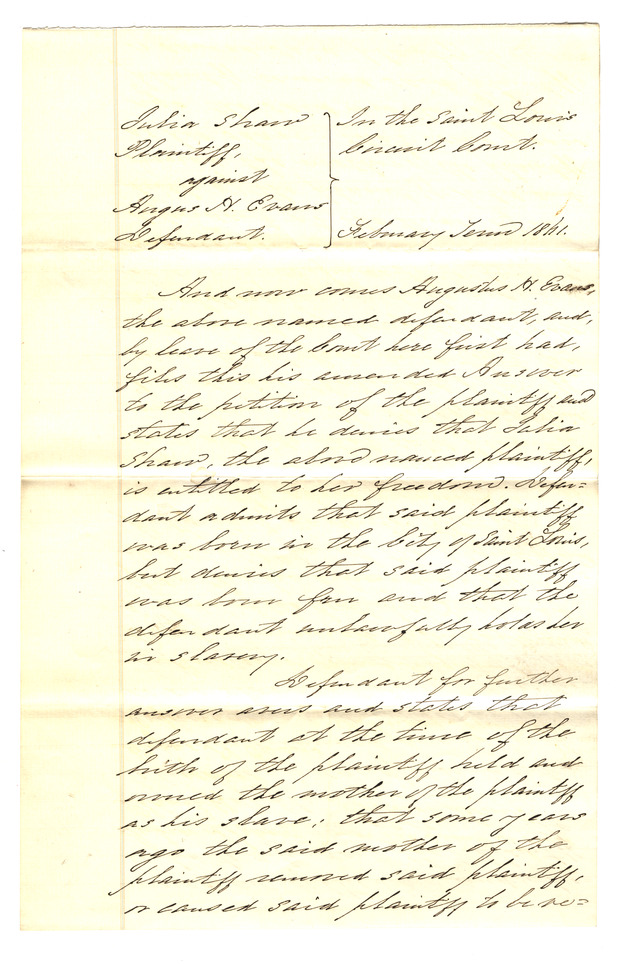 Julia Shaw
Plaintiff,
against
Angus H. Evans
Defendant.
In the Saint Louis
Circuit Court.
February Term 1861.
And now comes Augustus H. Evans,
the above named defendant, and,
by leave of the Court here first had,
files this his amended Answer
to the petition of the plaintiff and
states that he denies that Julia
Shaw, the above named plaintiff,
is entitled to her freedom. Defen=
dant admits that said plaintiff
was born in the City of Saint Louis,
but denies that said plaintiff
was born free and that the
defendant unlawfully holds her
in slavery.
Defendant for further
answer avers and states that
defendant at the time of the
birth of the plaintiff held and
owned the mother of the plaintiff
as his slave; that some years
ago the said mother of the
plaintiff removed said plaintiff,
or caused said plaintiff to be re=